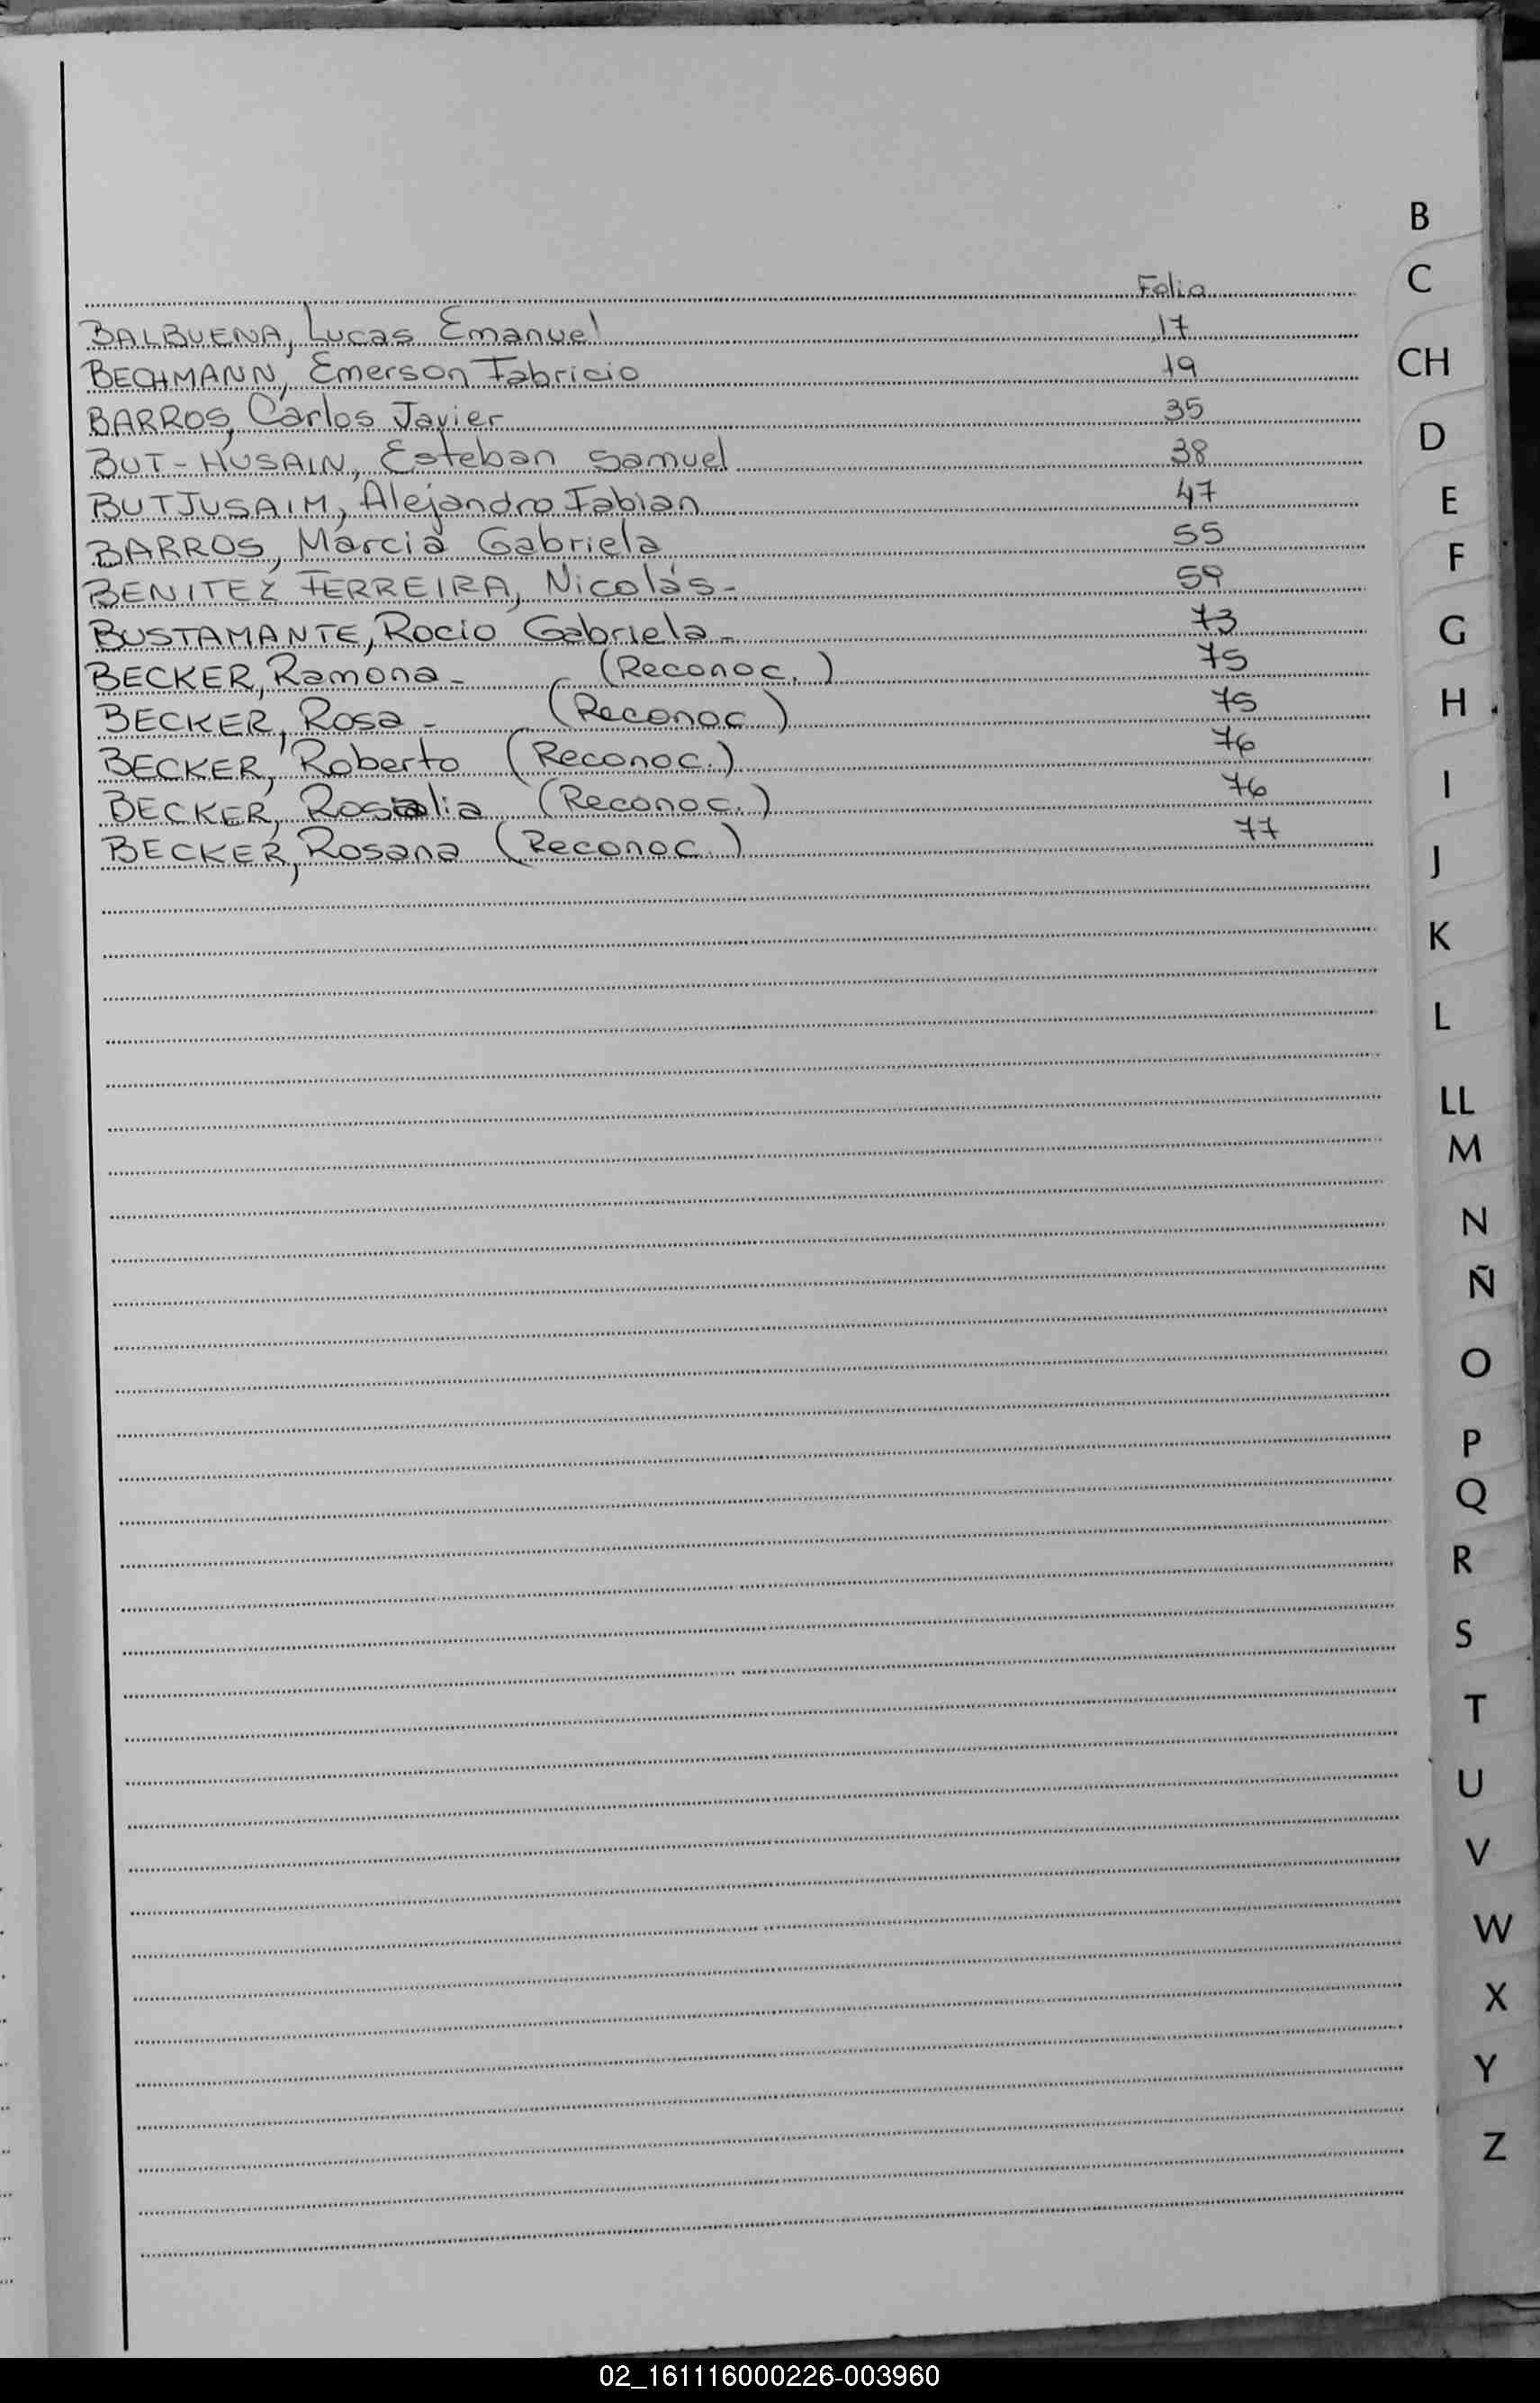 Folio
BALBUENA, Lucas Emanuel 17
BECHMANN, Emerson Fabricio 19
BARROS, Carlos Javier 35
BUT-HUSAIN, Esteban Samuel 38
BUTJUSAIM, Alejandro Fabian 47
BARROS, Marcia Gabriela 55
BENITEZ FERREIRA, Nicolás- 59
BUSTAMANTE, Rocio Gabriela- 73
BECKER, Ramona- (Reconoc.) 75
BECKER, Rosa- (Reconoc.) 75
BECKER, Roberto (Reconoc.) 76
BECKER, Rosalia (Reconoc.) 76
BECKER, Rosana (Reconoc.) 77
B
C
CH
D
E
F
G
H
I
J
K
L
LL
M
N
Ñ
O
P
Q
R
S
T
U
V
W
X
Y
Z
02_161116000226-003960